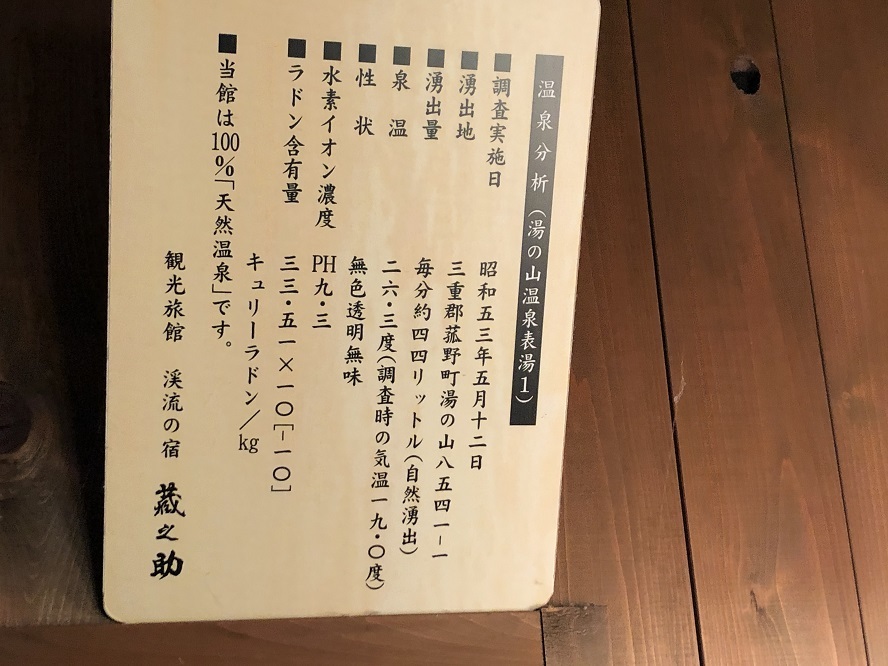 温泉分析（湯の山温泉表湯１）
■調査実施日　昭和五三年五月十二日
■湧出地　三重郡菰野町湯の山八五四一－一
■湧出量　毎分約四四リットル（自然湧出）
■泉温　二六・三度（調査時の気温一九・〇度）
■性状　無色透明無味
■水素イオン濃度　PH九・三
■ラドン含有量　三三・五一×一〇［－一〇］
キュリーラドン／kg
■当館は100％「天然温泉」です。
観光旅館　渓流の宿　蔵之助